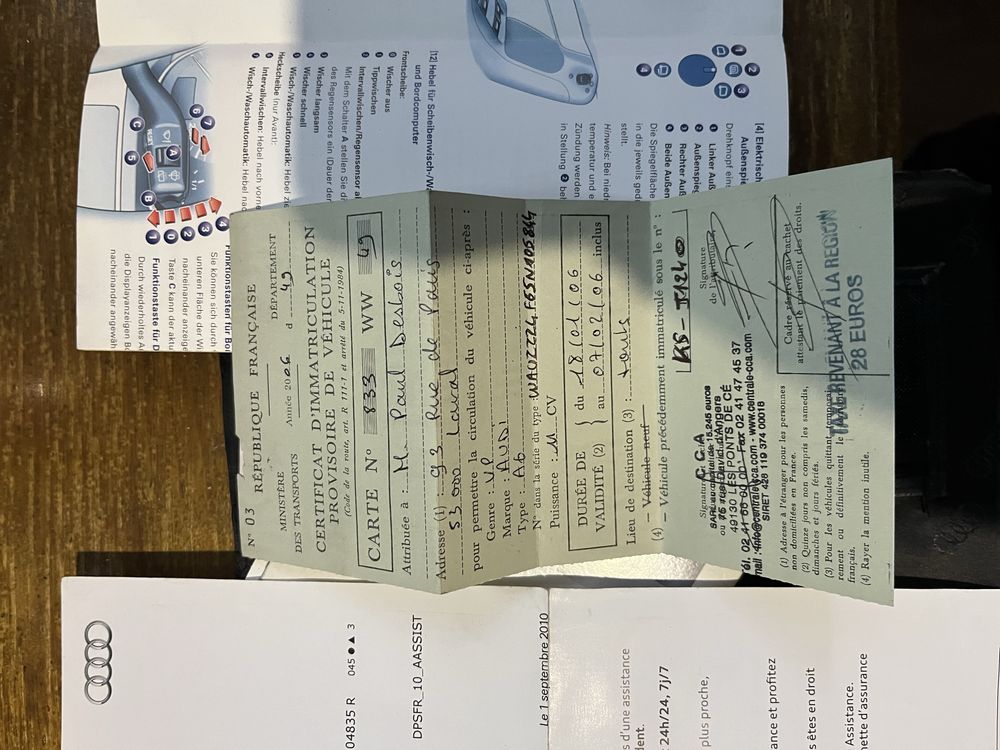 N° 03
RÉPUBLIQUE FRANÇAISE
MINISTÈRE
DES TRANSPORTS
Année 2006
DÉPARTEMENT
d 49
CERTIFICAT D'IMMATRICULATION
PROVISOIRE DE VÉHICULE
(Code de la route, art. R 111-1 et arrêté du 5-11-1984)
CARTE N° 833 WW 49
Attribuée à : M. Paul Desbois
Adresse (1) : 93 Rue de Paris
53 000 Laval
pour permettre la circulation du véhicule ci-après :
Genre : VP
Marque : AUDI
Type : A6
N° dans la série du type : WAUZZZ4F65N105844
Puissance : 11 CV
DURÉE DE
VALIDITÉ (2)
du 18/01/06
au 07/02/06 inclus
Lieu de destination (3) : tous
(4) — Véhicule neuf
— Véhicule précédemment immatriculé sous le n° :
KS-J124
Signature
de l'acquéreur
C C A
SARL au capital de 15.245 euros
75 rue David d'Angers
49130 LES PONTS DE CÉ
Tél. 02 41 66 Fax 02 41 47 45 37
mail : info@centrale-cca.com - www.centrale-cca.com
SIRET 428 119 374 00018
Cadre réservé au cachet
attestant le paiement des droits.
TAXE REVENANT A LA REGION
28 EUROS
(1) Adresse à l'étranger pour les personnes
non domiciliées en France.
(2) Quinze jours non compris les samedis,
dimanches et jours fériés.
(3) Pour les véhicules quittant
rement ou définitivement le
français.
(4) Rayer la mention inutile.
[12] Hebel für Scheibenwisch-/Wa
und Bordcomputer
Frontscheibe:
Wischer aus
Tippwischen
Intervallwischen/Regensensor a
Mit dem Schalter A stellen Sie di
des Regensensors ein (Dauer der
Wischer langsam
Wischer schnell
Wisch-/Waschautomatik: Hebel zie
Heckscheibe (nur Avant):
6 Intervallwischen: Hebel nach vorne
7 Wisch-/Waschautomatik: Hebel nac
RESET
A
B
C
5
6
7
1
0
2
3
4
Funktionstasten für Bo
Sie können sich durch
unteren Fläche der Wi
nacheinander anzeige
Taste C kann der aktu
Funktionstaste für D
Durch wiederholtes A
die Displayanzeigen B
nacheinander angewäh
1
2
3
4
[4] Elektrisch
Außenspie
Drehknopf eins
1 Linker Auß
2 Außenspieg
3 Rechter Auß
4 Beide Außen
Die Spiegelfläche
in die jeweils ged
stellt.
Hinweis: Bei niedr
temperatur und e
Zündung werden
in Stellung 2 bei
04835 R 045 ● ▲ 3
DPSFR_10_AASSIST
Le 1 septembre 2010
s d'une assistance
dent.
24h/24, 7j/7
plus proche,
ance et profitez
s êtes en droit
Assistance.
nette d'assurance